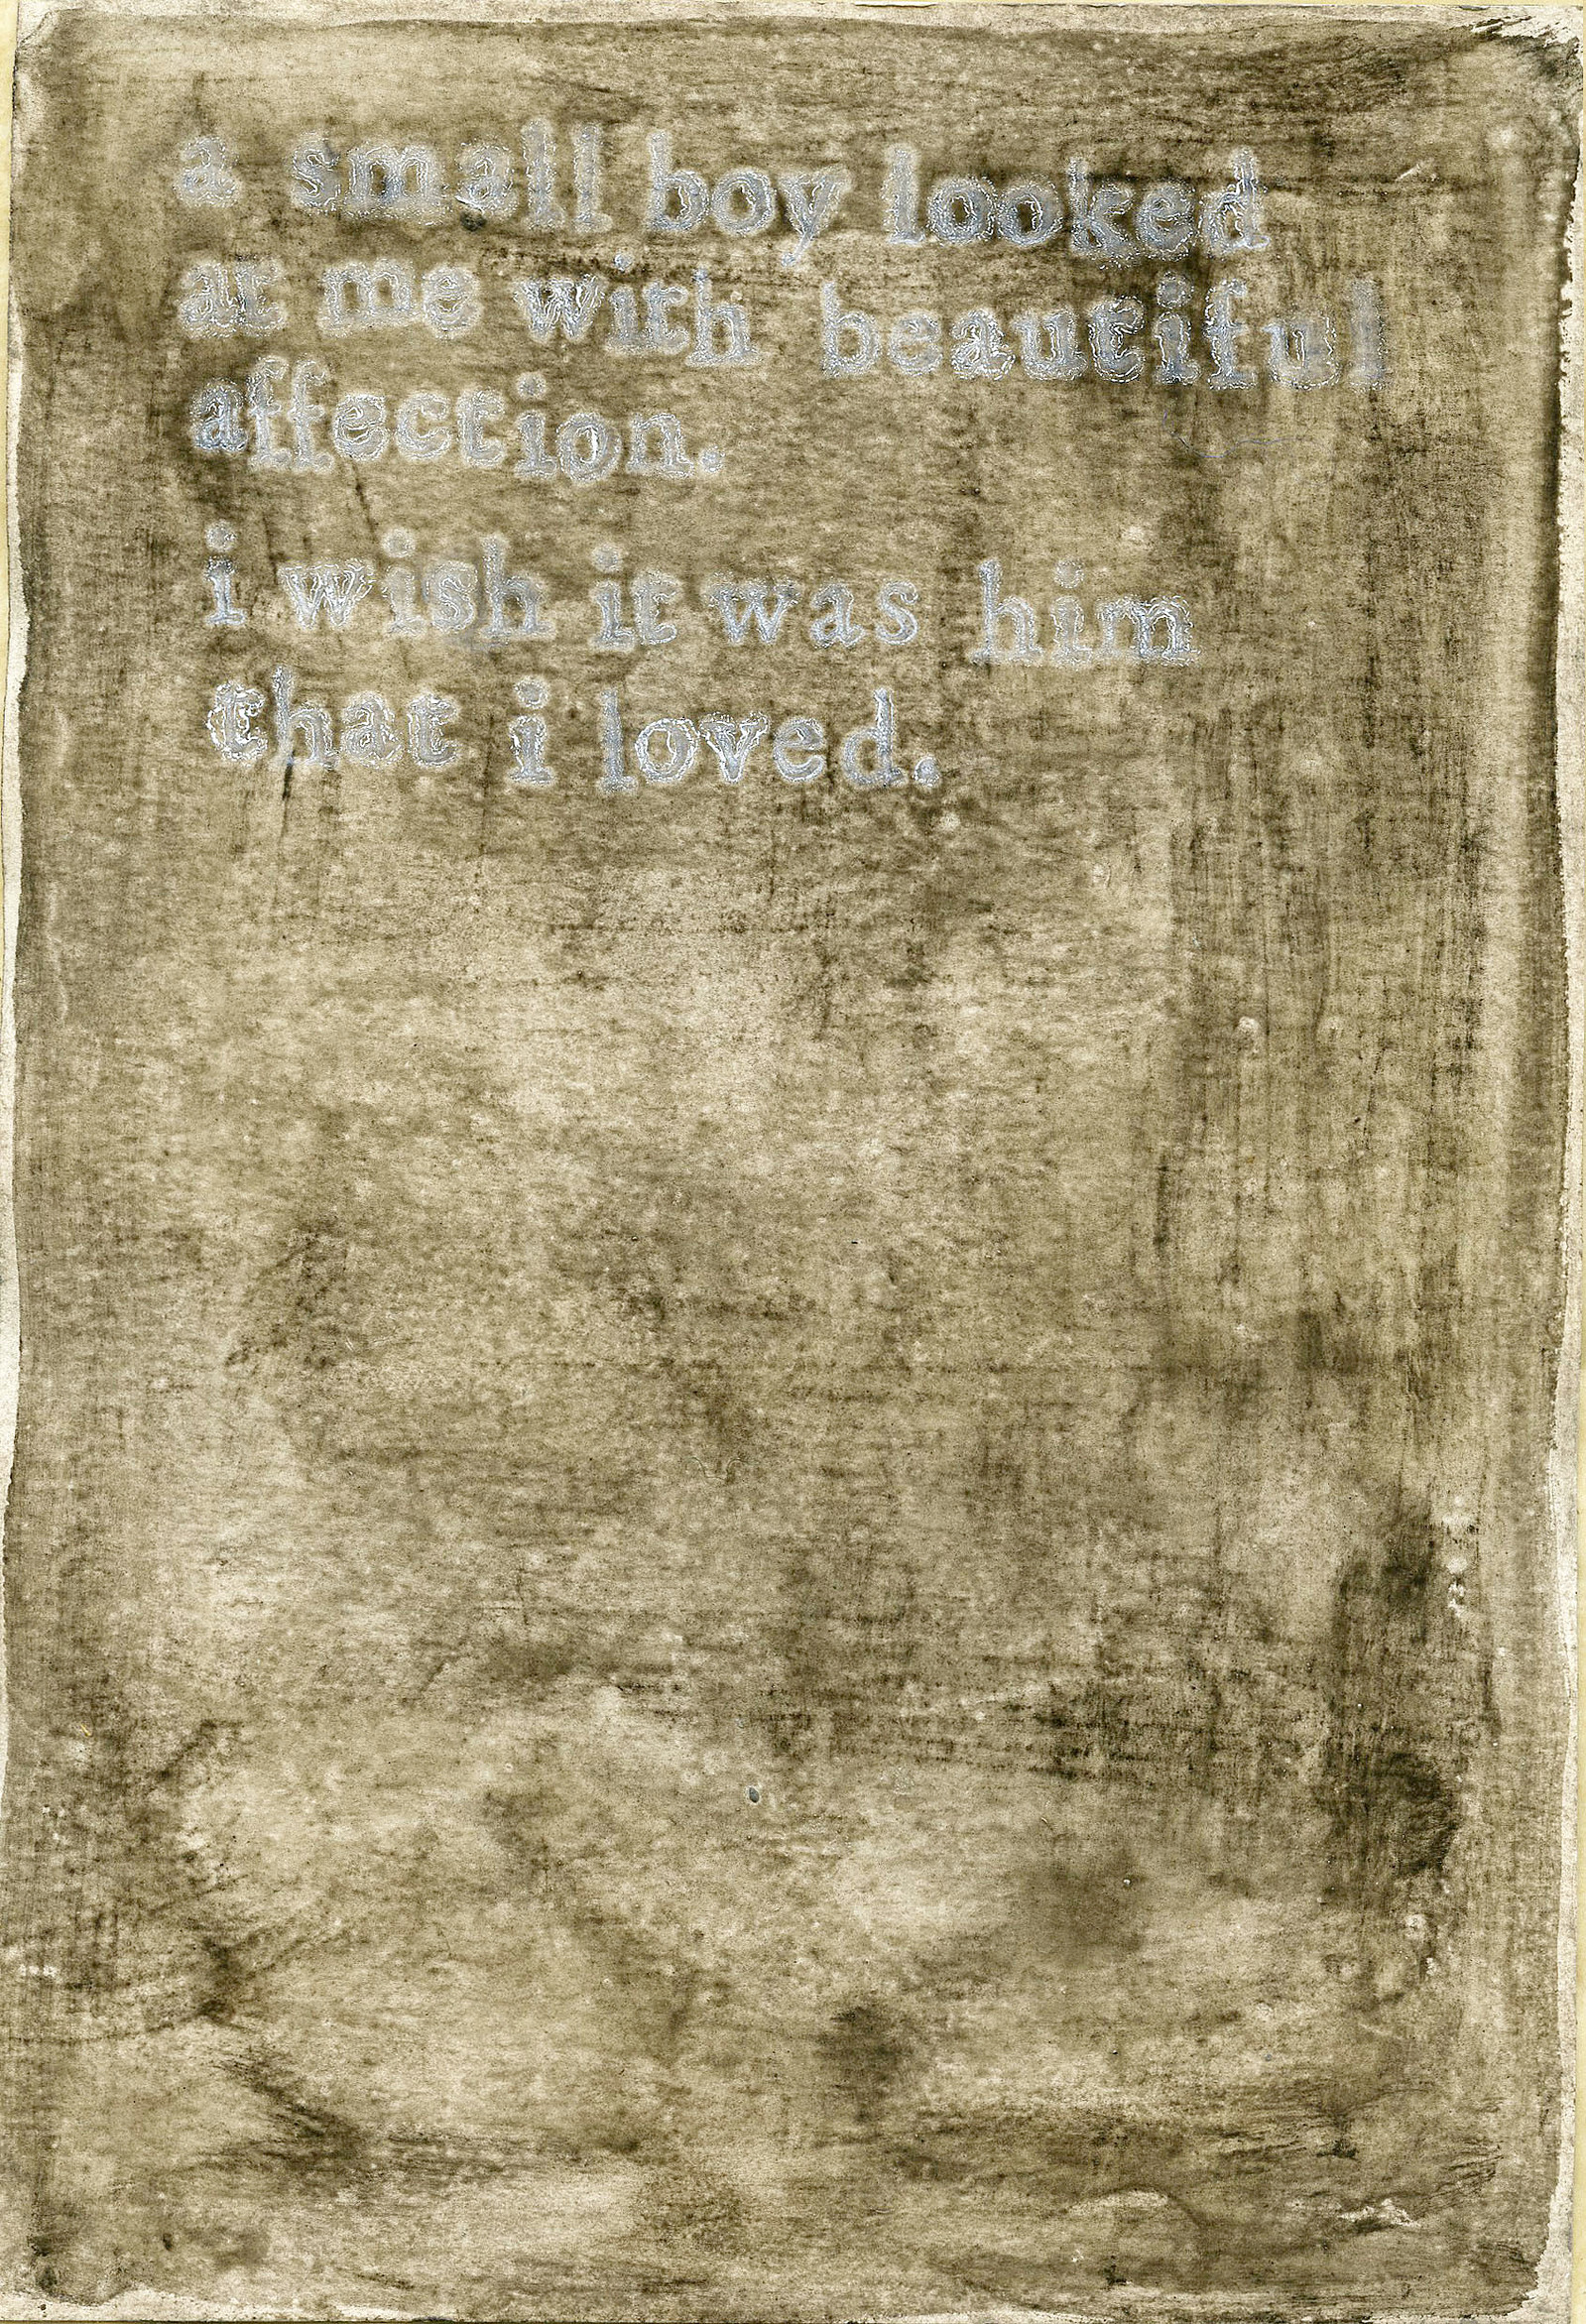 a small boy looked
at me with beautiful
affection.
i wish it was him
that i loved.